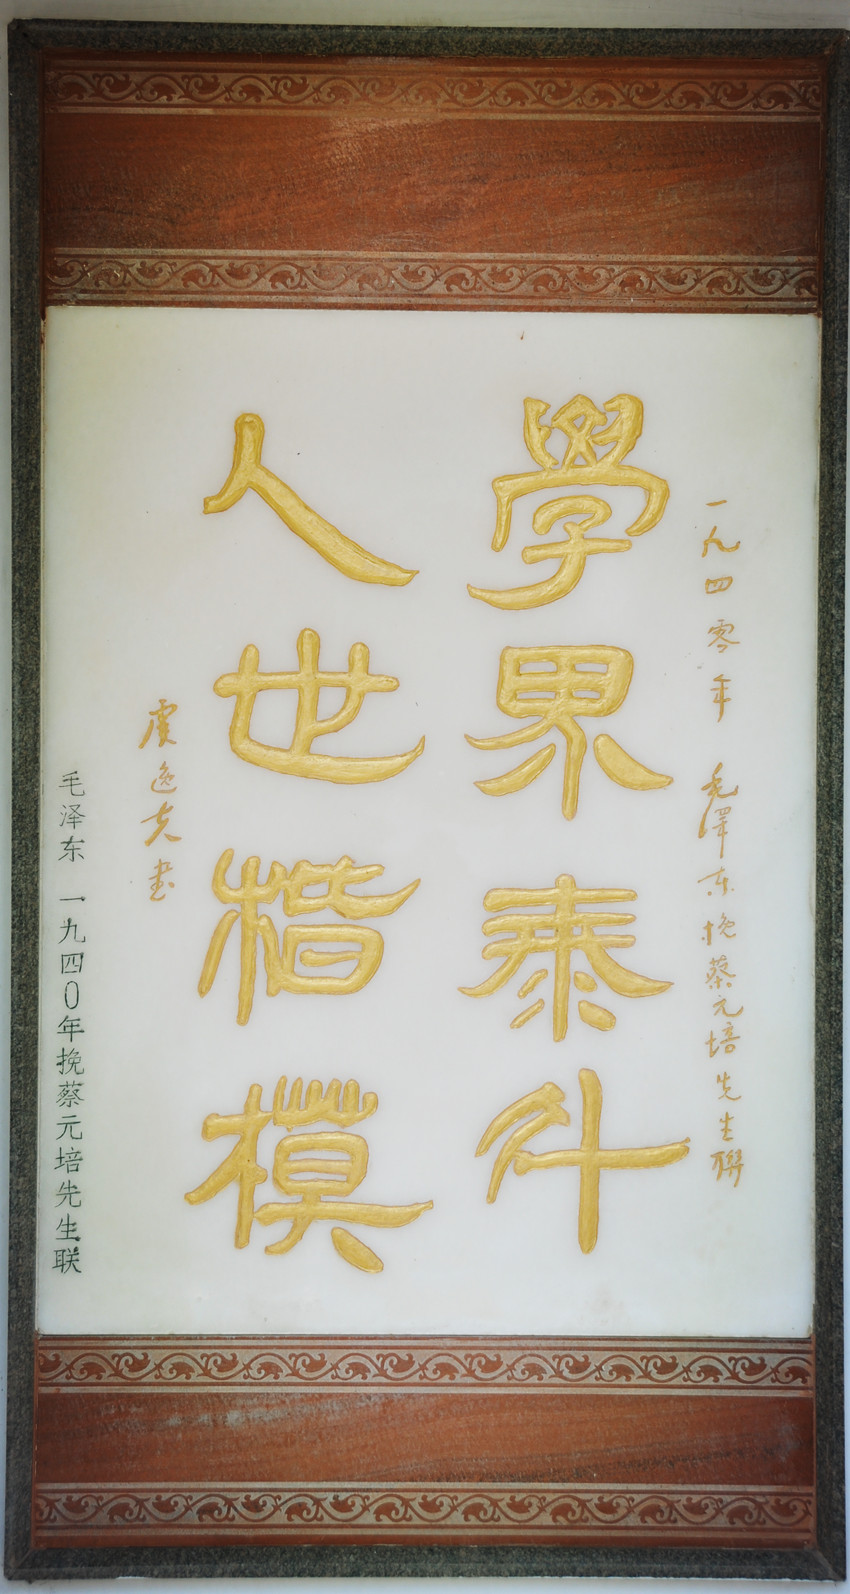 一九四零年 毛澤东挽蔡元培先生聯
學界泰斗
人世楷模
虞逸夫书
毛泽东 一九四0年挽蔡元培先生联